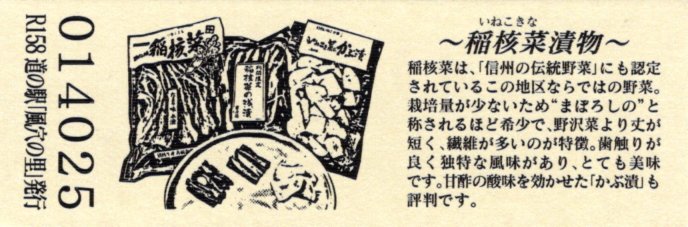 014025
R158 道の駅「風穴の里」発行
稲核菜
稲核菜の浅漬
かぶ漬
いねこきな
～稲核菜漬物～
稲核菜は、「信州の伝統野菜」にも認定
されているこの地区ならではの野菜。
栽培量が少ないため“まぼろしの”と
称されるほど希少で、野沢菜より丈が
短く、繊維が多いのが特徴。歯触りが
良く独特な風味があり、とても美味
です。甘酢の酸味を効かせた「かぶ漬」も
評判です。